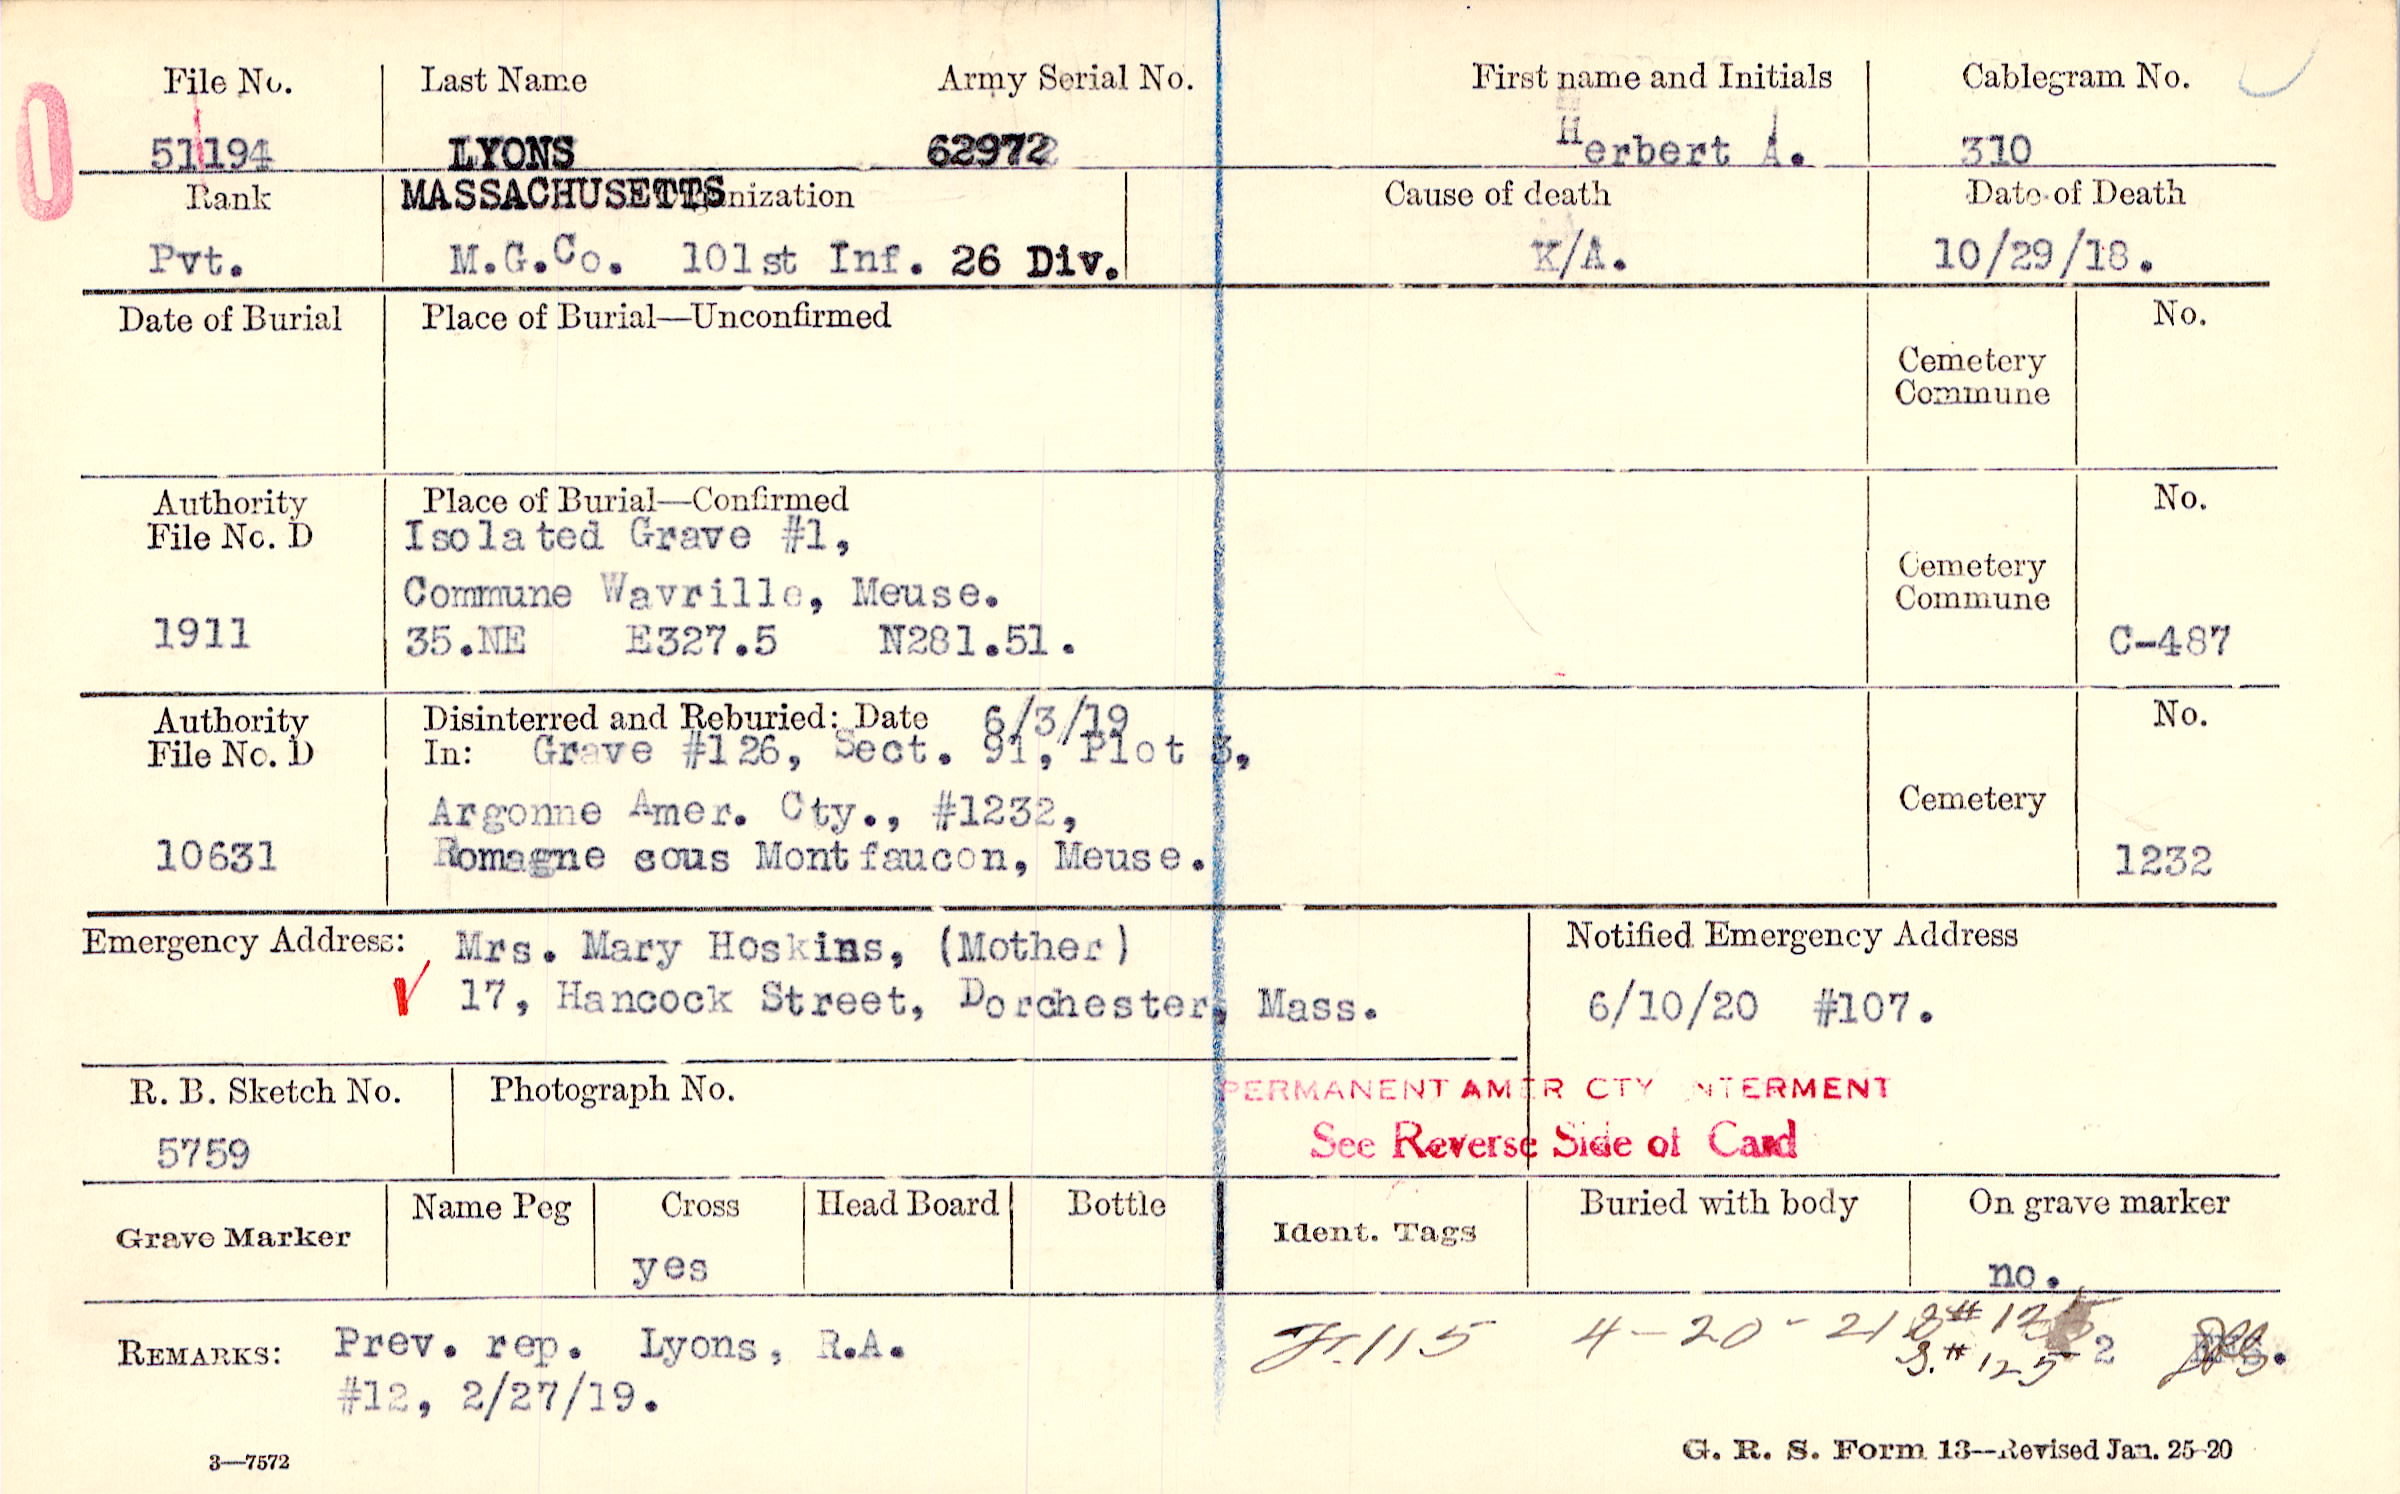 File No. Last Name Army Serial No. First name and Initials Cablegram No.
51194 LYONS 62972 Herbert A. 310
Rank MASSACHUSETTS Organization Cause of death Date of Death
Pvt. M.G.Co. 101st Inf. 26 Div. K/A. 10/29/18.
Date of Burial Place of Burial—Unconfirmed No.
Cemetery
Commune
Authority Place of Burial—Confirmed No.
File No. D Isolated Grave #1,
Cemetery
Commune Wavrille, Meuse. Commune
1911 35.NE E327.5 N281.51. C-487
Authority Disinterred and Reburied: Date 6/3/19 No.
File No. D In: Grave #126, Sect. 91, Plot 3,
Argonne Amer. Cty., #1232, Cemetery
10631 Romagne sous Montfaucon, Meuse. 1232
Emergency Address: Mrs. Mary Hoskins, (Mother) Notified Emergency Address
17, Hancock Street, Dorchester, Mass. 6/10/20 #107.
R. B. Sketch No. Photograph No. PERMANENT AMER CTY INTERMENT
5759 See Reverse Side of Card
Grave Marker Name Peg Cross Head Board Bottle Ident. Tags Buried with body On grave marker
yes no.
REMARKS: Prev. rep. Lyons, R.A. 115 4-20-21
#12, 2/27/19. #125 2
3—7572 G. R. S. Form 13—Revised Jan. 25-20